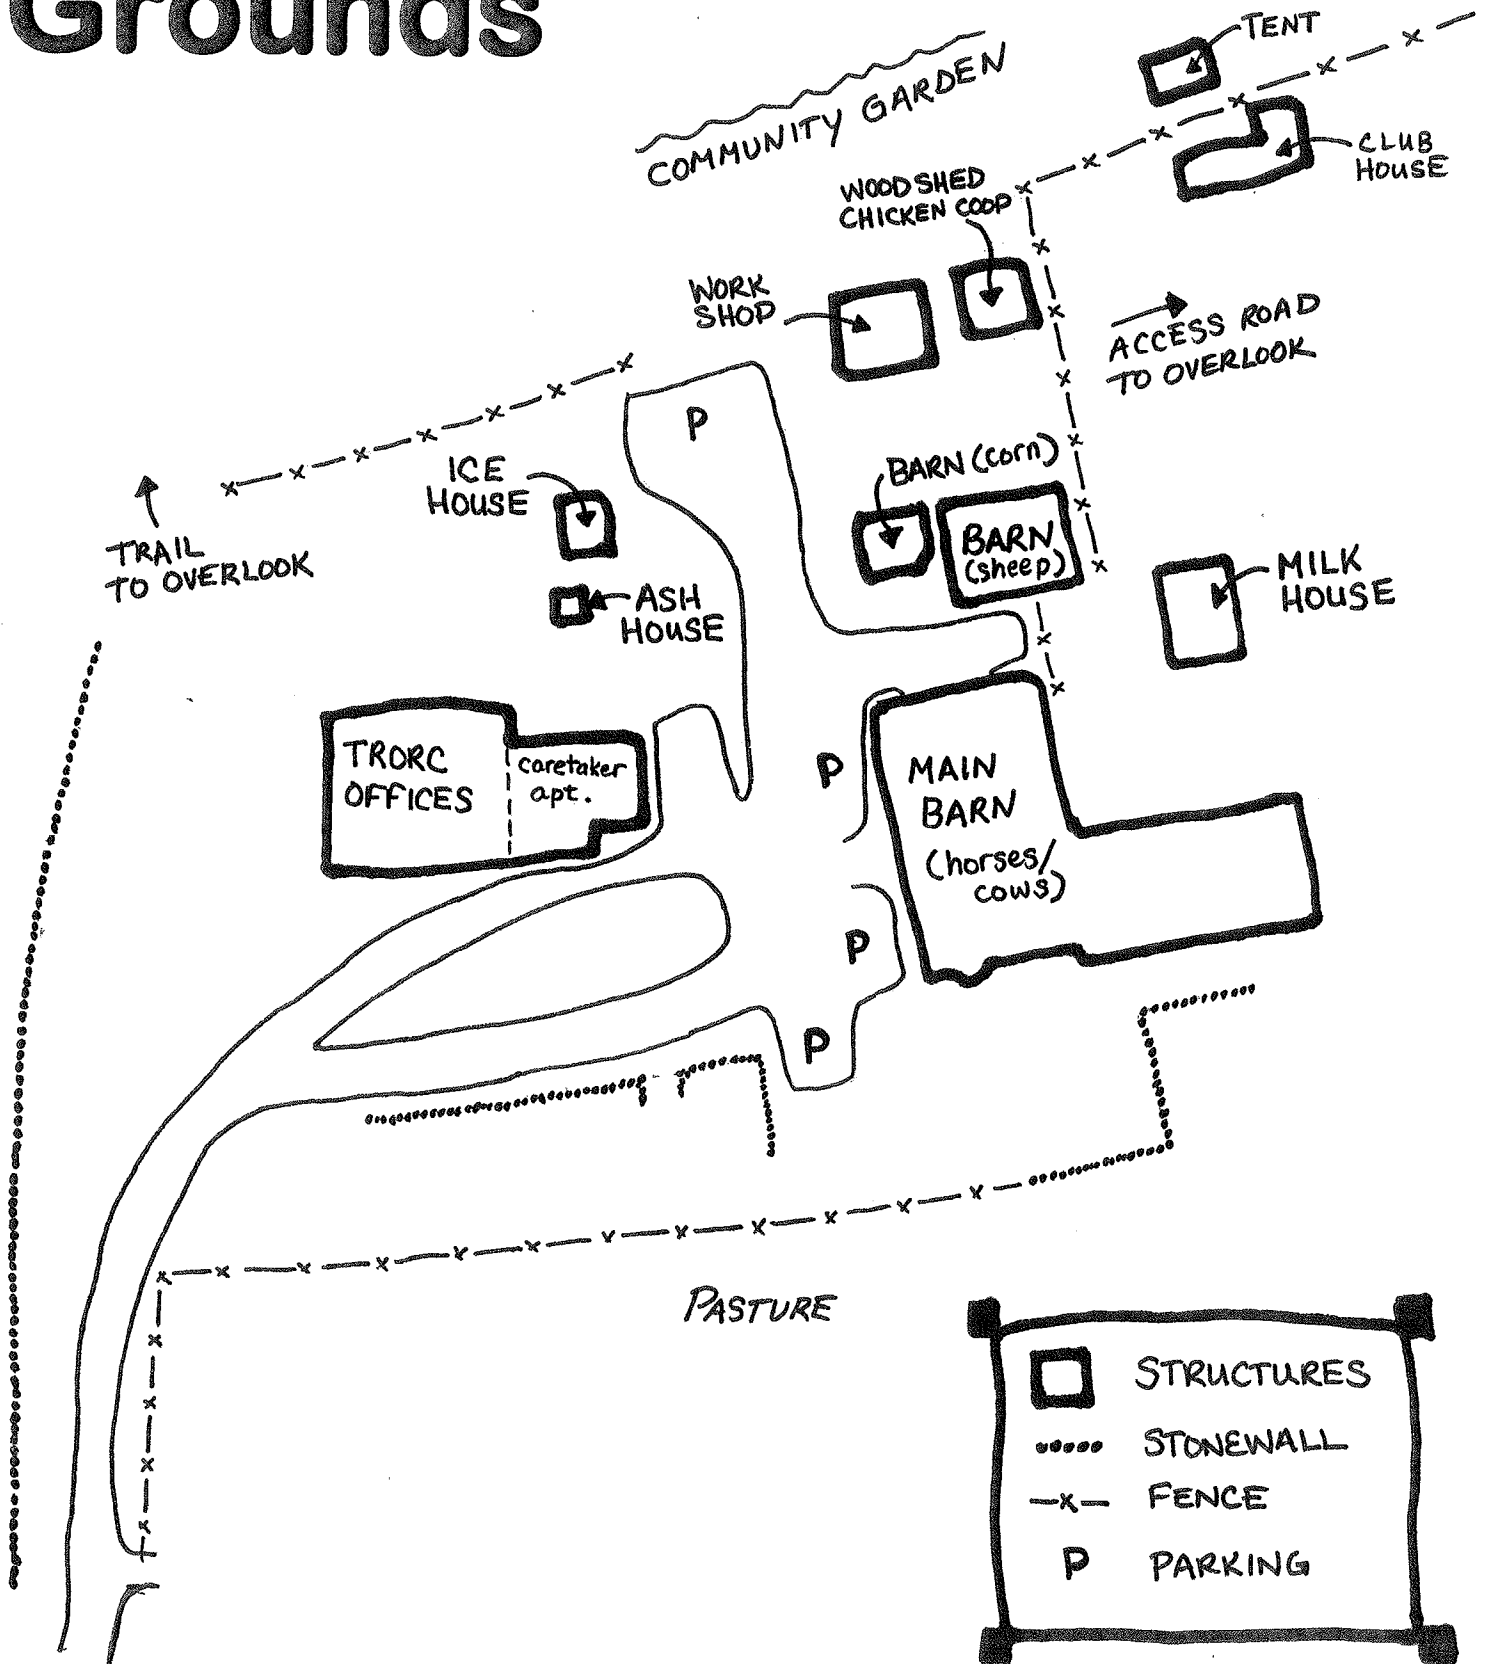 Grounds
TENT
COMMUNITY GARDEN
CLUB
HOUSE
WOODSHED
CHICKEN COOP
WORK
SHOP
ACCESS ROAD
TO OVERLOOK
P
ICE
HOUSE
BARN (corn)
TRAIL
TO OVERLOOK
BARN
(sheep)
MILK
HOUSE
ASH
HOUSE
TRORC
OFFICES
caretaker
apt.
P
MAIN
BARN
(horses/
cows)
P
P
PASTURE
STRUCTURES
STONEWALL
FENCE
P PARKING